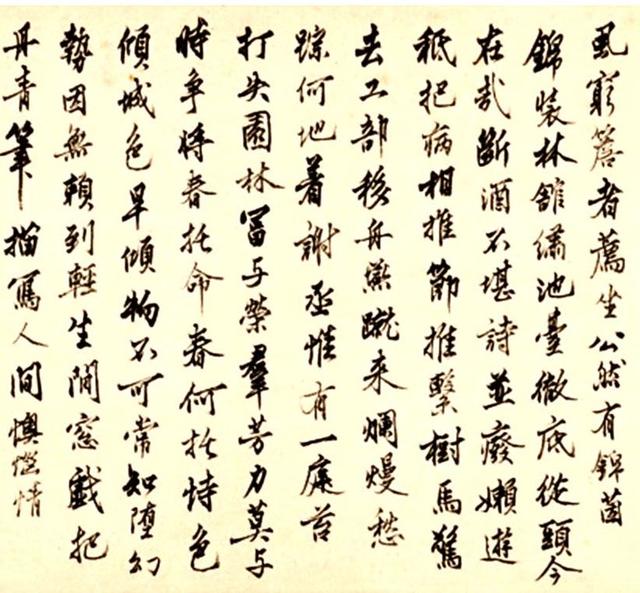 風窮簷者薦坐公然有錦茵
錦裝林館繡池臺徹底從頭今
在哉斷酒不堪詩並廢嬾遊
秪把病相推節推繫樹馬驚
去工部移舟燕蹴来爛熳愁
踪何地着謝丞惟有一庭苔
打失園林富与榮羣芳力莫与
時爭將春托命春何托恃色
傾城色早傾物不可常知墮幻
勢因無賴到輕生閒窓戲把
丹青筆描寫人間懊惱情